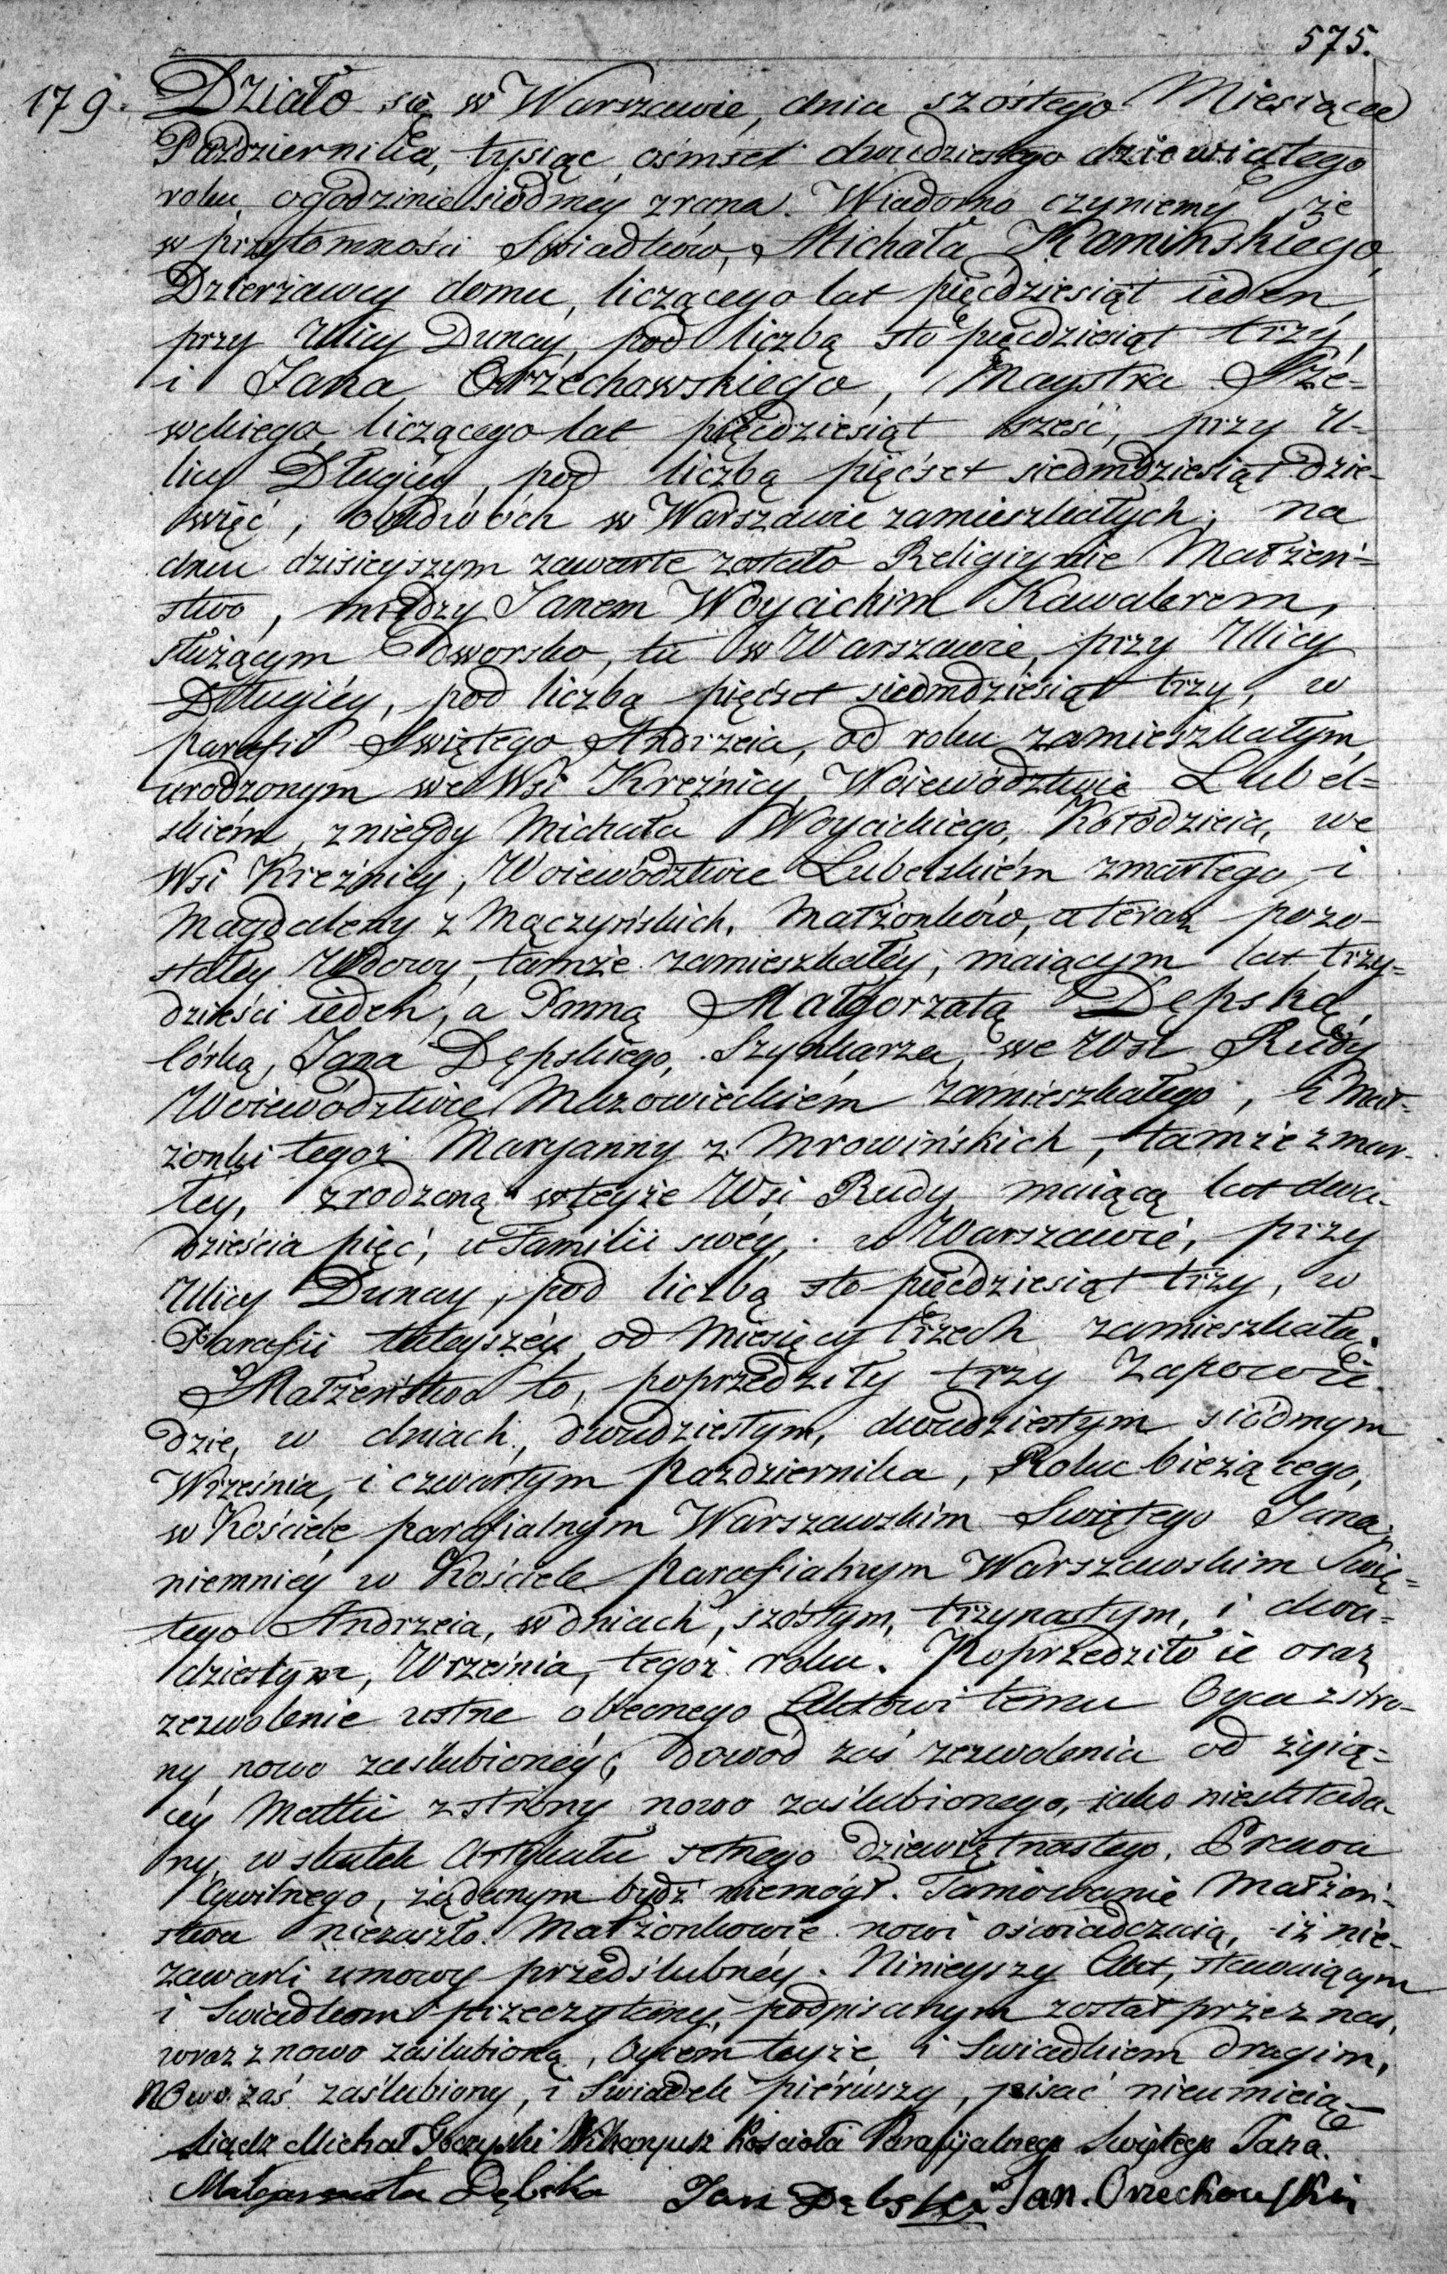 575.
179. Działo się w Warszawie, dnia szóstego Miesiąca
Października, tysiąc ośmset dwudziestego dziewiątego
roku, ogodzinie siódméy zrana. Wiadomo czyniemy, że
w przytomności Swiadków, Michała Kaminskiego,
Dzierżawcy domu, liczącego lat pięćdziesiąt ieden,
przy Ulicy Dunay, pod liczbą sto pięćdziesiąt trzy,
i Jana Orzechowskiego, Maystra Sze-
wckiego, liczącego lat pięćdziesiąt sześć, przy U-
licy Długiey, pod liczbą pięćset siedmdziesiąt dzie-
więć, obudwóch w Warszawie zamieszkałych; na
dniu dzisieyszym zawarte zostało Religiynie Małżeń-
stwo, między Janem Woycickim Kawalerem,
służącym dworsko, tu w Warszawie, przy Ulicy
Długiéy, pod liczbą pięćset siedmdziesiąt trzy, w
parafii Swiętego Andrzeia, od roku zamieszkałym,
urodzonym we Wsi Kreźnicy, Woiewództwie Lubel-
skiém, zniegdy Michała Woycickiego, Kołodzieia, we
Wsi Kreźnicy, Woiewództwie Lubelskiém zmarłego, i
Magdaleny z Mączyńskich, Małżonków, a teraz pozo-
stałéy Wdowy, tamże zamieszkałéy; maiącym lat trzy-
dzieści ieden; a Panną Małgorzatą Dępską,
córką, Jana Dępskiego, Szynkarza, we Wsi Rudy
Woiewództwie Mazowieckiém zamieszkałego, i Mał-
żonki tegoż Maryanny z Mrowińskich, tamże zmar-
łéy, zrodzoną wteyże Wsi Rudy maiącą lat dwa-
dzieścia pięć, u Familii swéy, w Warszawie, przy
Ulicy Dunay, pod liczbą sto pięćdziesiąt trzy, w
Parafii tuteyszéy od Miesięcy trzech zamieszkałą.
Małżeństwo to, poprzedziły trzy Zapowie-
dzie, w dniach, dwudziestym, dwudziestym siódmym
Września, i czwartym Października, Roku bieżącego,
w Kościele parafialnym Warszawskim Swiętego Jana,
niemniéy w Kościele Parafialnym Warszawskim Swię-
tego Andrzeia, w dniach, szóstym, trzynastym, i dwu-
dziestym, Września, tegoż roku. Poprzedziło ie oraz
zezwolenie ustne obecnego Aktowi temu Oyca zstro-
ny nowo zaślubionéy; dowód zaś zezwolenia od żyią-
céy Matki zstrony nowo zaślubionego, iako nieskłada-
ny, w skutek Artykułu setnego dziewiętnastego, Prawa
Cywilnego, żądanym bydź niemógł. Tamowanie Małżeń-
stwa niezaszło. Małżonkowie nowi oświadczaią, iż nie-
zawarli umowy przedślubnéy. Ninieyszy Akt, stawaiącym
i Swiadkom przeczytany, podpisanym został przez nas,
wraz z nowo zaślubioną, Oycem teyże, i Swiadkiem drugim,
Nowo zaś zaślubiony, i Swiadek piérwszy, pisać nieumieią
Xiądz Michał Wikaryusz Kościoła Parafijalnego Swiętego Jana.
Małgorzata Dębska Jan Dębski Jan Orzechowski